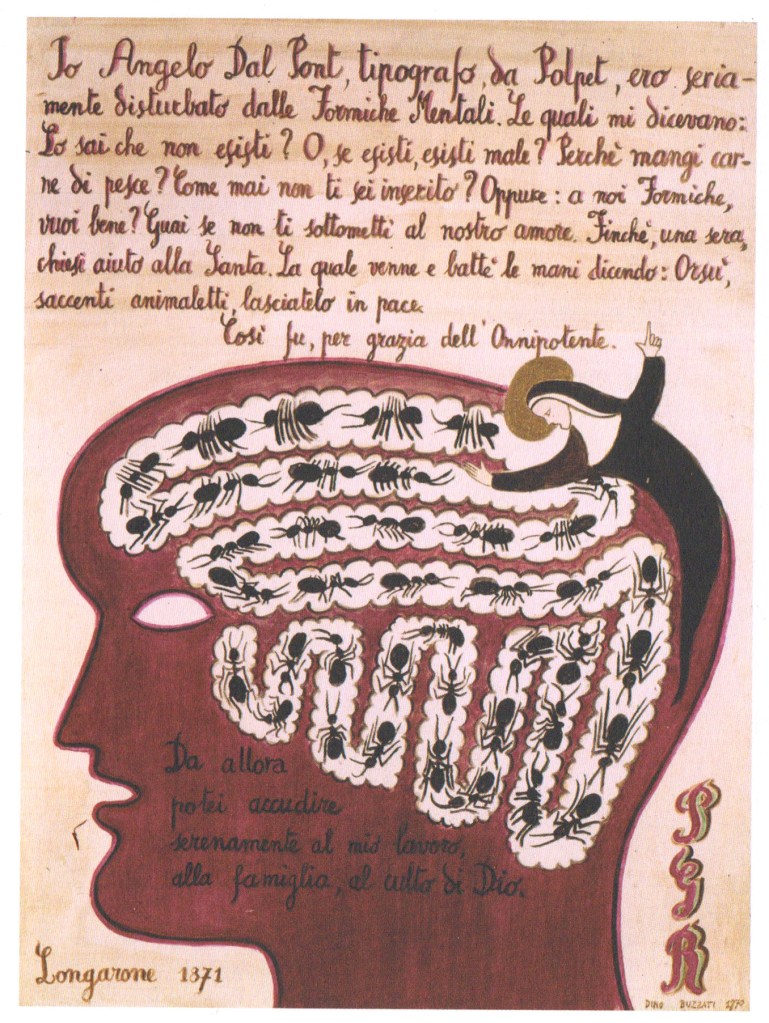 Io Angelo Dal Pont, tipografo, da Polpet, ero seria-
mente disturbato dalle Formiche Mentali. Le quali mi dicevano:
Lo sai che non esisti? O, se esisti, esisti male? Perchè mangi car-
ne di pesce? Come mai non ti sei inserito? Oppure: a noi Formiche,
vuoi bene? Guai se non ti sottometti al nostro amore. Finchè, una sera,
chiesi aiuto alla Santa. La quale venne e battè le mani dicendo: Orsù,
saccenti animaletti, lasciatelo in pace.
Così fu, per grazia dell'Onnipotente.
Da allora
potei accudire
serenamente al mio lavoro,
alla famiglia, al culto di Dio.
PGR
Longarone 1871
DINO BUZZATI 1970